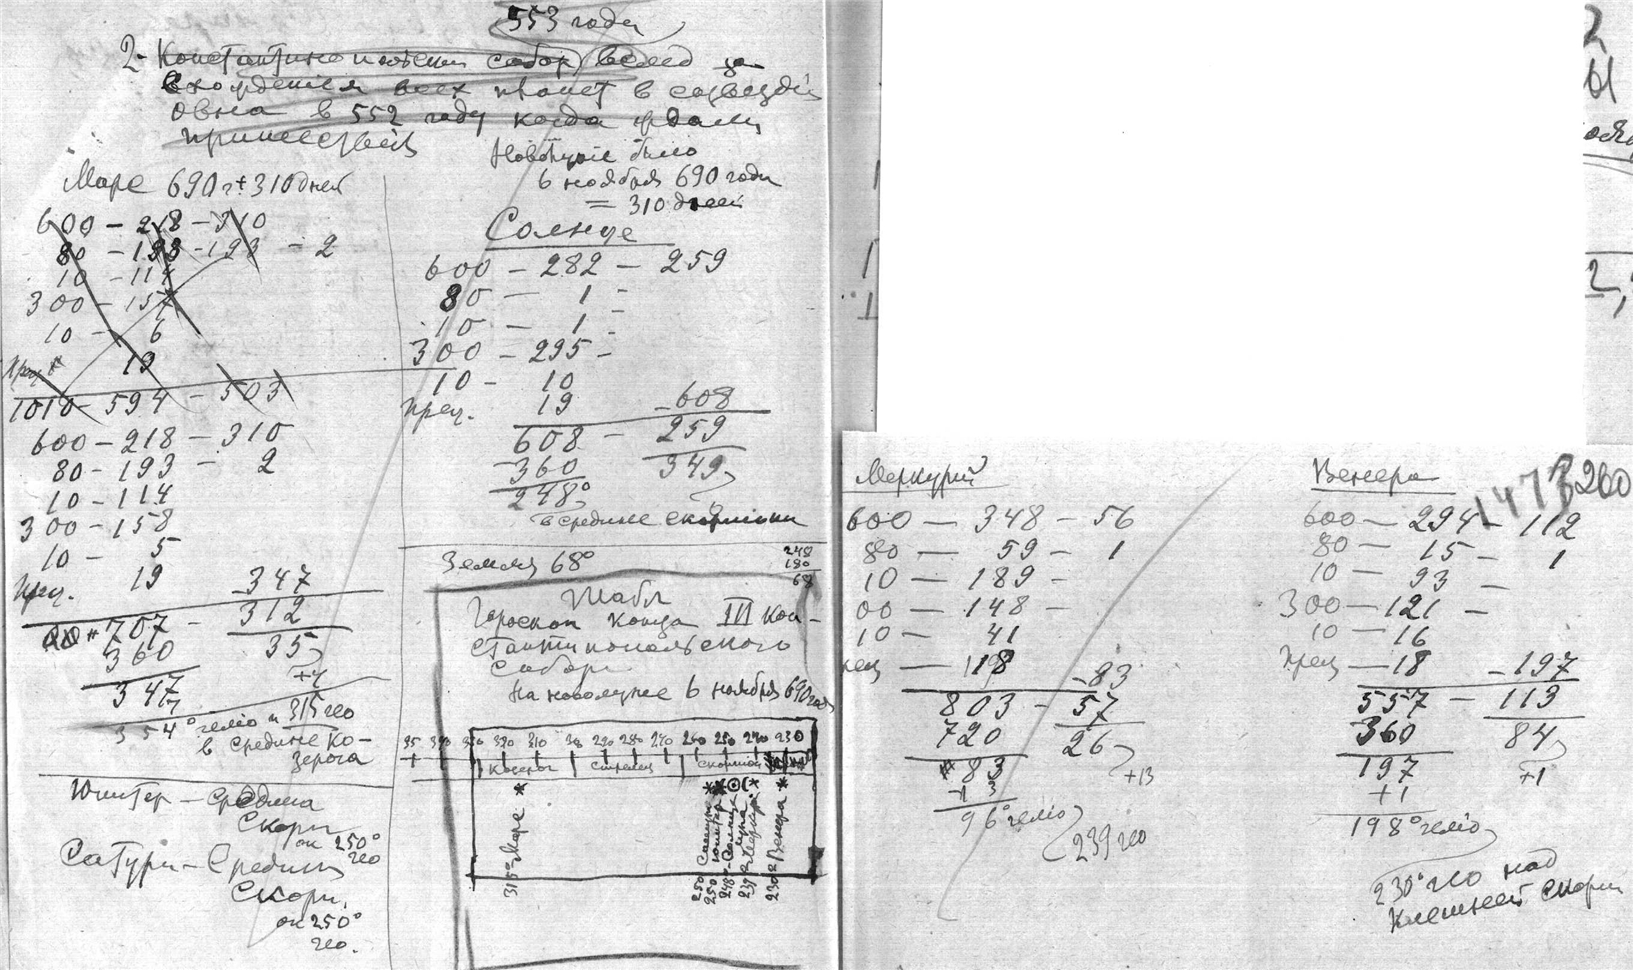 553 года
2-Константинопольский собор) вслед за
вхождением всех планет в созвездие
Овна в 552 году когда ждали
пришествия
Марс 690 г + 310 дней
600 - 218 - 310
80 - 193 - 193 - 2
10 - 114
300 - 157
10 - 6
19
1010 - 594 - 503
600 - 218 - 310
80 - 193 - 2
10 - 114
300 - 158
10 - 5
Прец. 19 - 347
707 - 312
360 35
347 +4
7
354° гелио и 315 гео
в средине Ко-
зерога
Юпитер - средина
Скорп
ок 250°
гео
Сатурн - Средина
Скорп.
ок 250°
гео.
Новолуние было
6 ноября 690 года
= 310 дней
Солнце
600 - 282 - 259
80 - 1 -
10 - 1 -
300 - 295 -
10 - 10
Прец. 19 - 608
608 - 259
360 349
248°
в средине скорпиона
Земля 68°
248
180
68
Гороскоп конца III Кон-
стантинопольского
Собора
на новолуние 6 ноября 690 года
320 310 290 280 270 260 250 240 230
Козерог Стрелец Скорпион
315° Марс
250 Сатурн
250 Юпитер
248° Солнце
Луна
239 Меркур.
230° Венера
Меркурий
600 - 348 - 56
80 - 59 - 1
10 - 189 -
00 - 148 -
10 - 41
рец - 18 - 83
803 - 57
720 26
83 +13
13
96° гелио
239 гео
Венера
1473 260
600 - 294 - 112
80 - 15 - 1
10 - 93 -
300 - 121 -
10 - 16
Прец - 18 - 197
557 - 113
360 84
197 +1
+1
198° гелио
230° гео над
Клешней Скорп